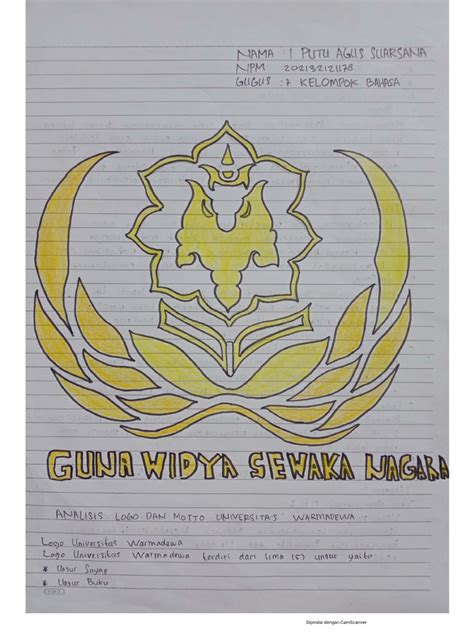 NAMA : I PUTU AGUS SUARSANA
NPM : 202132121178
GUGUS : 7 KELOMPOK BAHASA
GUNA WIDYA SEWAKA NAGARA
ANALISIS LOGO DAN MOTTO UNIVERSITAS WARMADEWA
Logo Universitas Warmadewa
Logo Universitas Warmadewa terdiri dari lima (5) unsur yaitu
* Unsur Sayap
* Unsur Buku
Dipindai dengan CamScanner